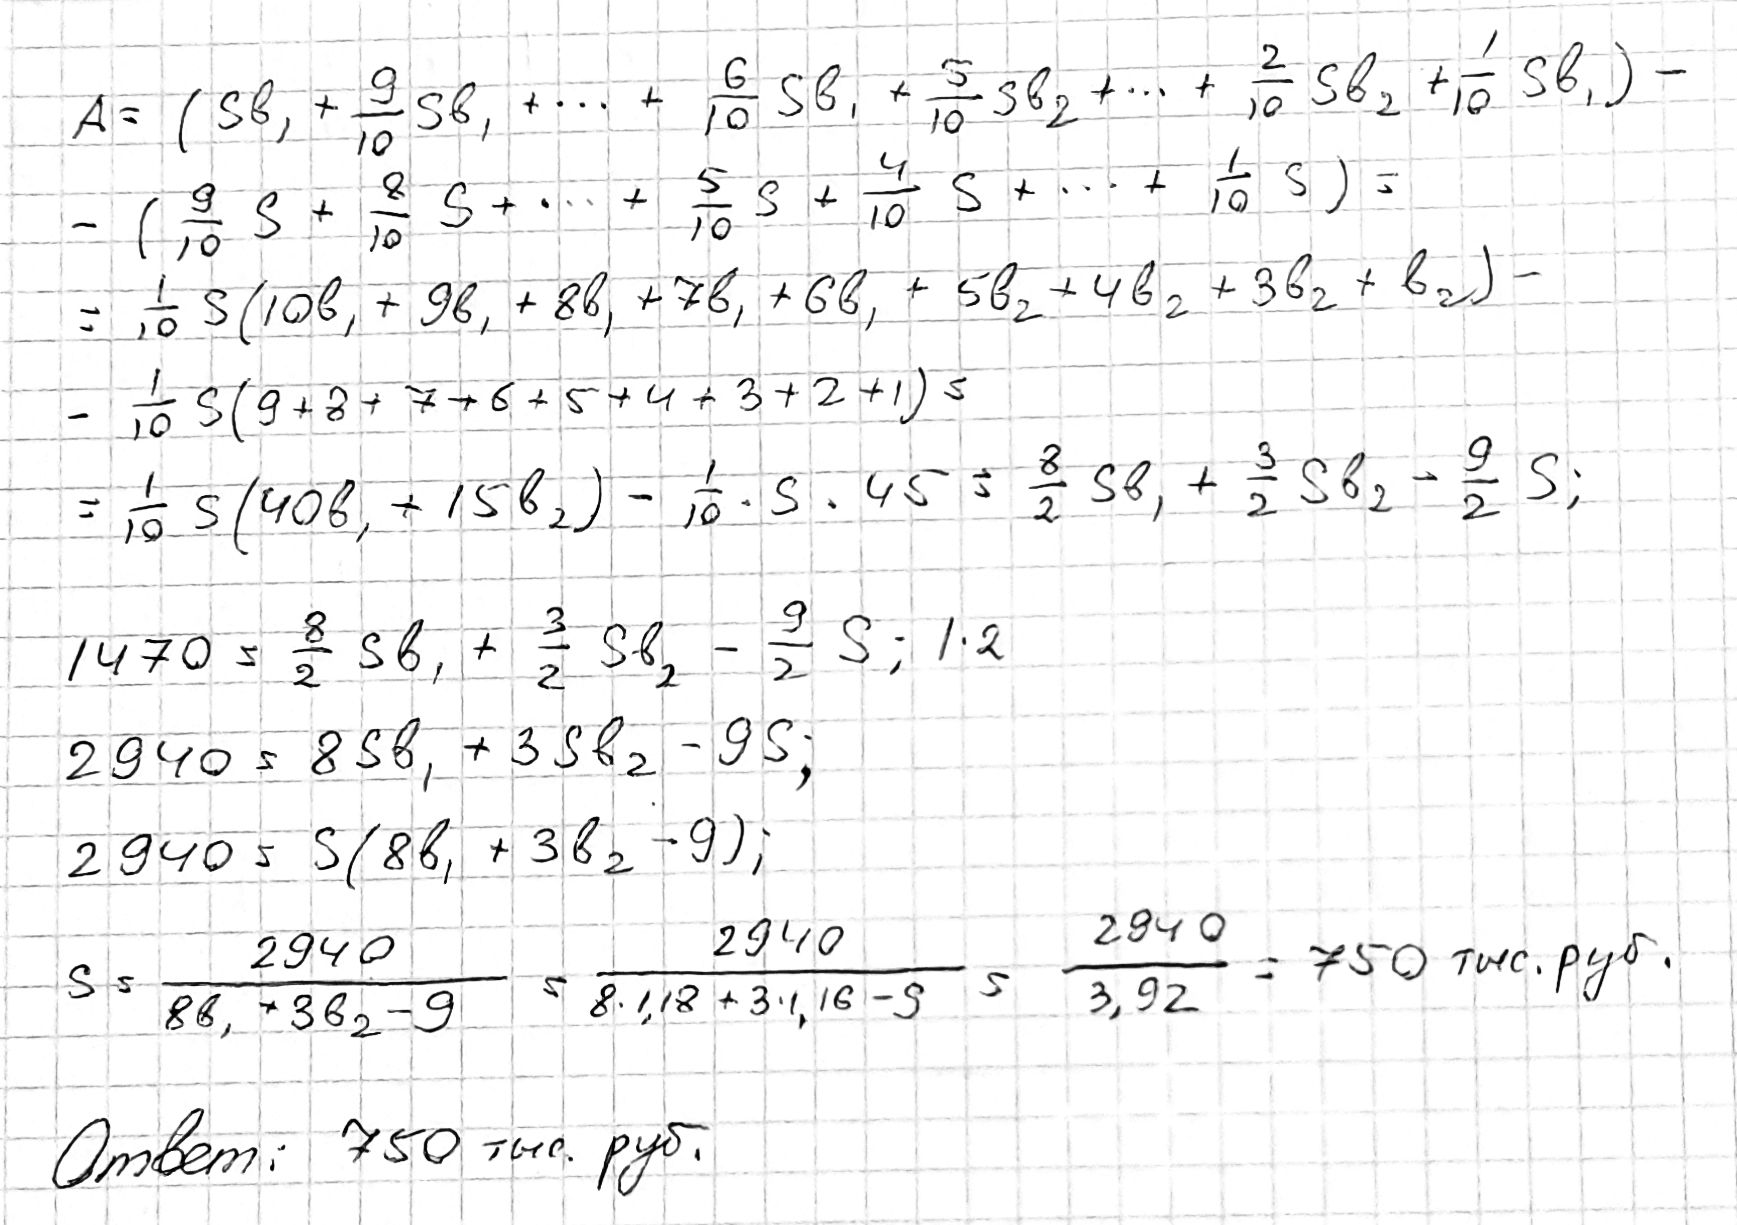 A = (Sb₁ + 9/10 Sb₁ + ... + 6/10 Sb₁ + 5/10 Sb₂ + ... + 2/10 Sb₂ + 1/10 Sb₁) -
- (9/10 S + 8/10 S + ... + 5/10 S + 4/10 S + ... + 1/10 S) =
= 1/10 S(10b₁ + 9b₁ + 8b₁ + 7b₁ + 6b₁ + 5b₂ + 4b₂ + 3b₂ + b₂) -
- 1/10 S(9+8+7+6+5+4+3+2+1) =
= 1/10 S(40b₁ + 15b₂) - 1/10 · S · 45 = 8/2 Sb₁ + 3/2 Sb₂ - 9/2 S;
1470 = 8/2 Sb₁ + 3/2 Sb₂ - 9/2 S; |·2
2940 = 8Sb₁ + 3Sb₂ - 9S;
2940 = S(8b₁ + 3b₂ - 9);
S = 2940/(8b₁ + 3b₂ - 9) = 2940/(8·1,18 + 3·1,16 - 9) = 2940/3,92 = 750 тыс. руб.
Ответ: 750 тыс. руб.